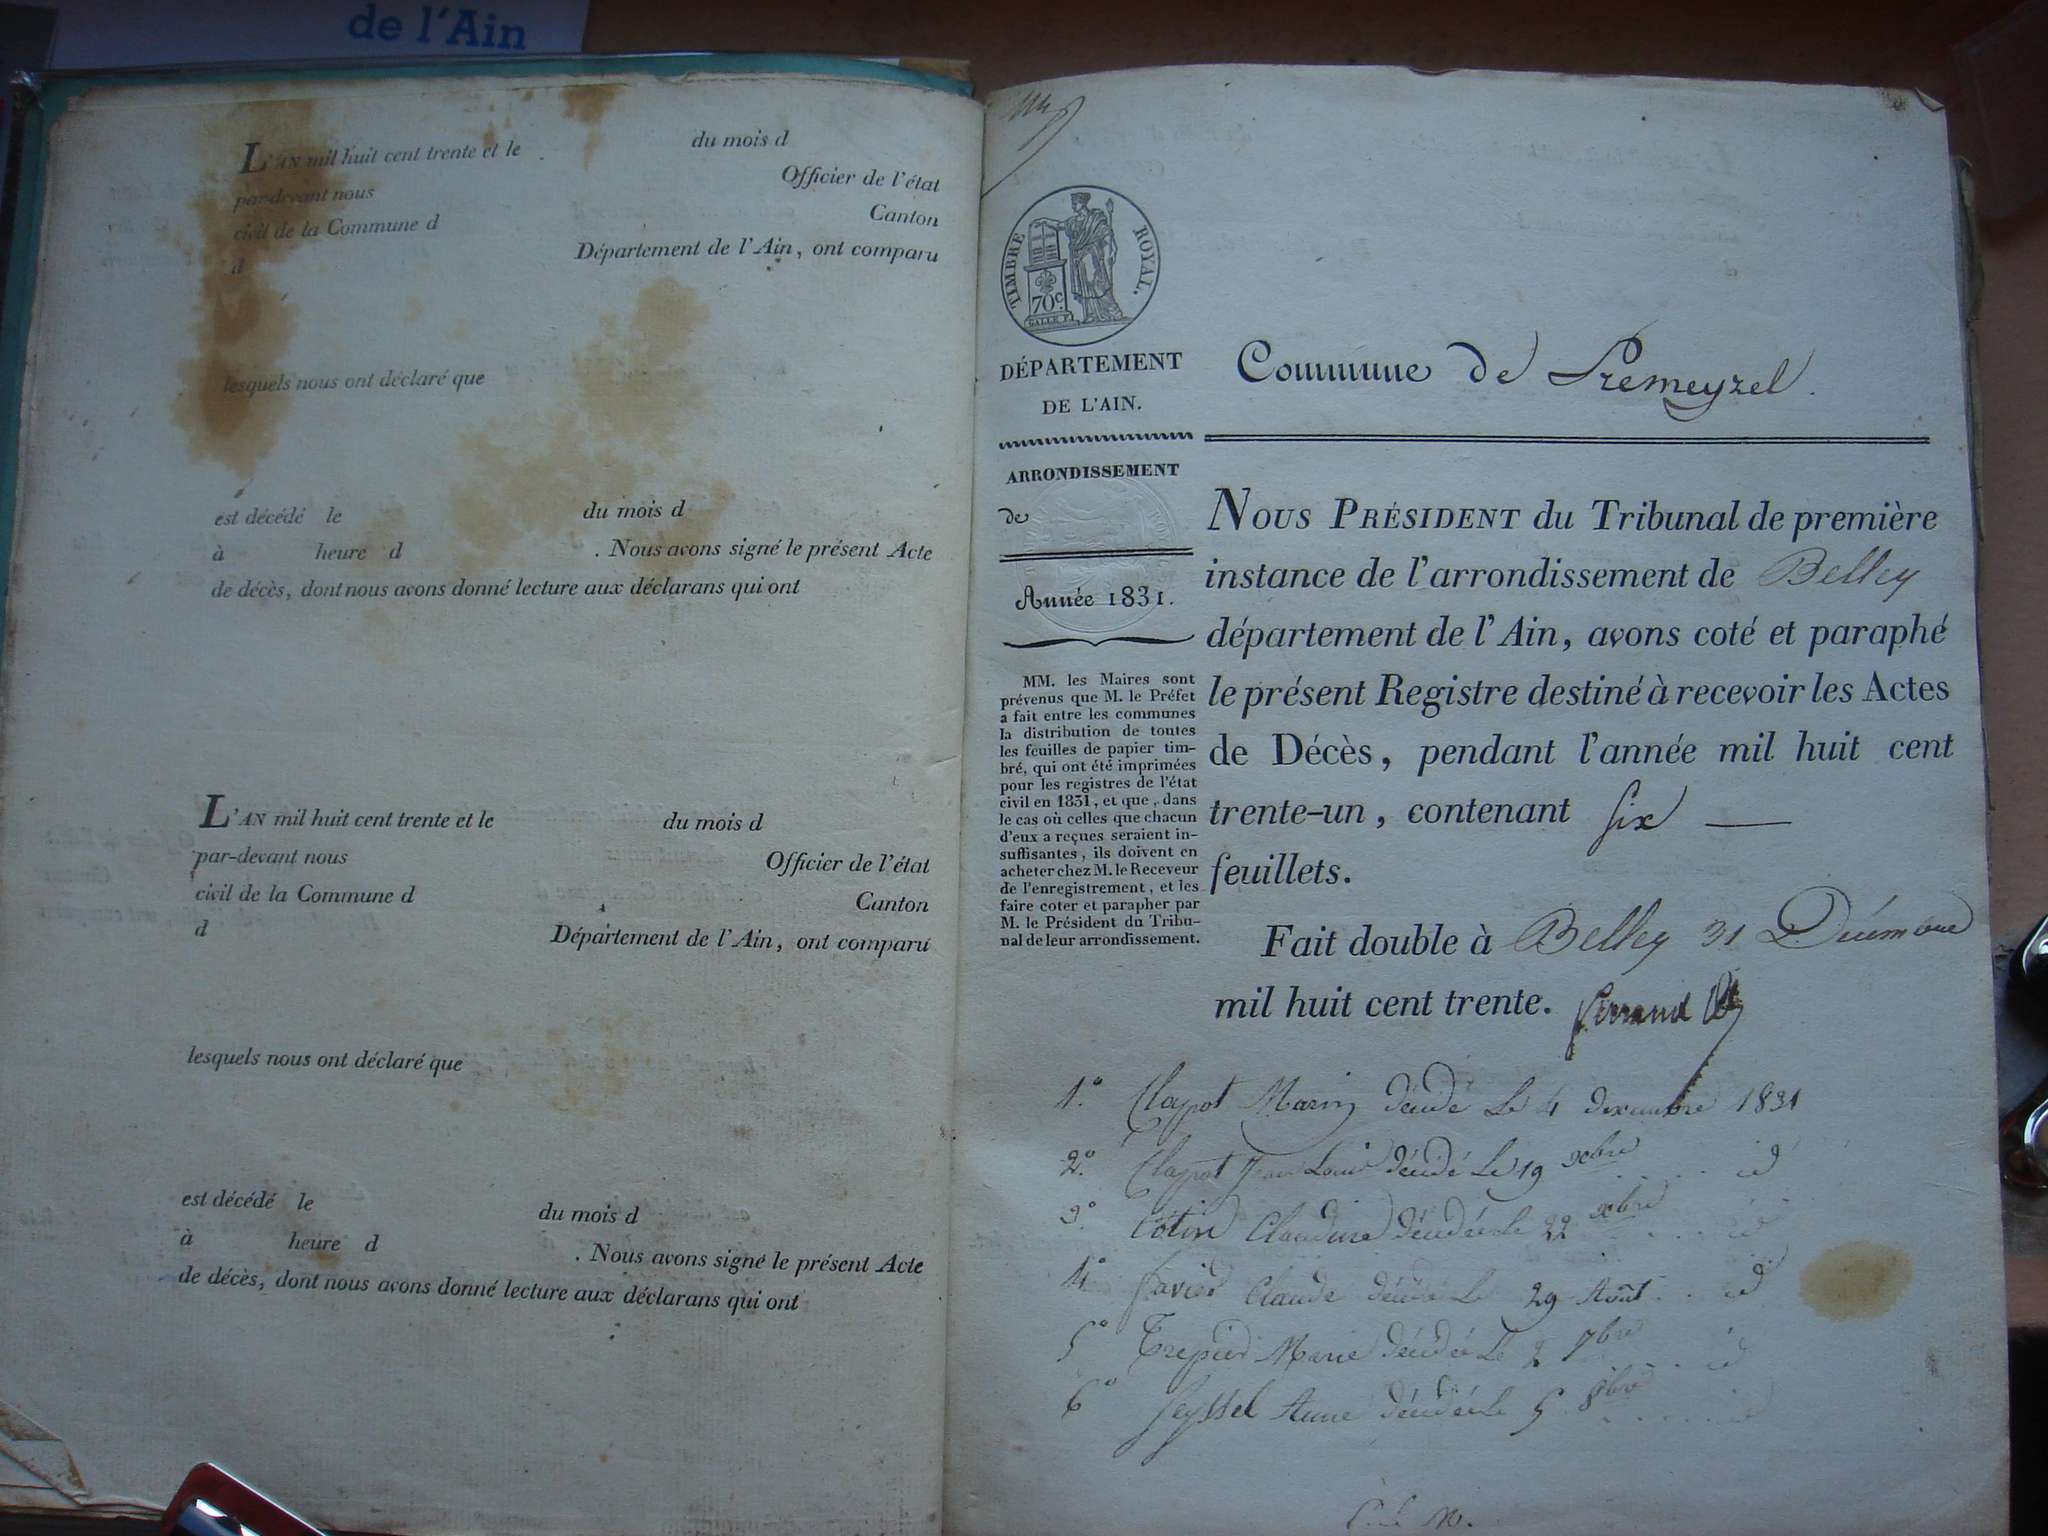 de l'Ain
L'AN mil huit cent trente et le du mois d
par-devant nous Officier de l'état
civil de la Commune d Canton
d Département de l'Ain, ont comparu
lesquels nous ont déclaré que
est décédé le du mois d
à heure d . Nous avons signé le présent Acte
de décès, dont nous avons donné lecture aux déclarans qui ont
L'AN mil huit cent trente et le du mois d
par-devant nous Officier de l'état
civil de la Commune d Canton
d Département de l'Ain, ont comparu
lesquels nous ont déclaré que
est décédé le du mois d
à heure d . Nous avons signé le présent Acte
de décès, dont nous avons donné lecture aux déclarans qui ont
TIMBRE ROYAL.
70c.
GALLE F.
DÉPARTEMENT
DE L'AIN.
ARRONDISSEMENT
de
Année 1831.
MM. les Maires sont
prévenus que M. le Préfet
a fait entre les communes
la distribution de toutes
les feuilles de papier tim-
bré, qui ont été imprimées
pour les registres de l'état
civil en 1831, et que, dans
le cas où celles que chacun
d'eux a reçues seraient in-
suffisantes, ils doivent en
acheter chez M. le Receveur
de l'enregistrement, et les
faire coter et parapher par
M. le Président du Tribu-
nal de leur arrondissement.
Commune de Premeyzel.
NOUS PRÉSIDENT du Tribunal de première
instance de l'arrondissement de Belley
département de l'Ain, avons coté et paraphé
le présent Registre destiné à recevoir les Actes
de Décès, pendant l'année mil huit cent
trente-un, contenant six
feuillets.
Fait double à Belley 31 Décembre
mil huit cent trente.
1.° Clapot Marin décédé le 4 décembre 1831
2.° Clapot Jean Louis décédé le 19 xbre id
3.° Cotin Claudine décédée le 22 xbre id
4.° Claude décédé le 29 Août id
5° Trepier Marie décédée le 2 7bre id
6° Seyssel Anne décédée le 5 8bre id